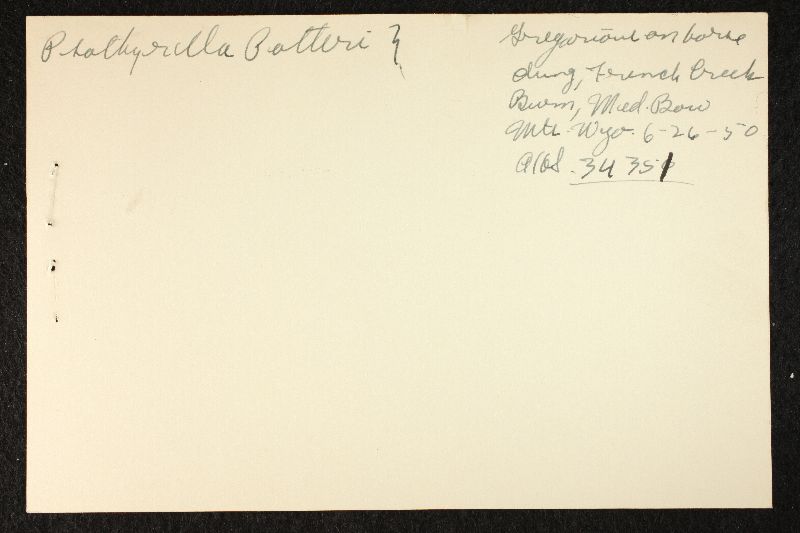 Psathyrella Potteri
Gregarious on horse
dung, French Creek
Burn, Med. Bow
Mts. Wyo. 6-26-50
AHS. 34351